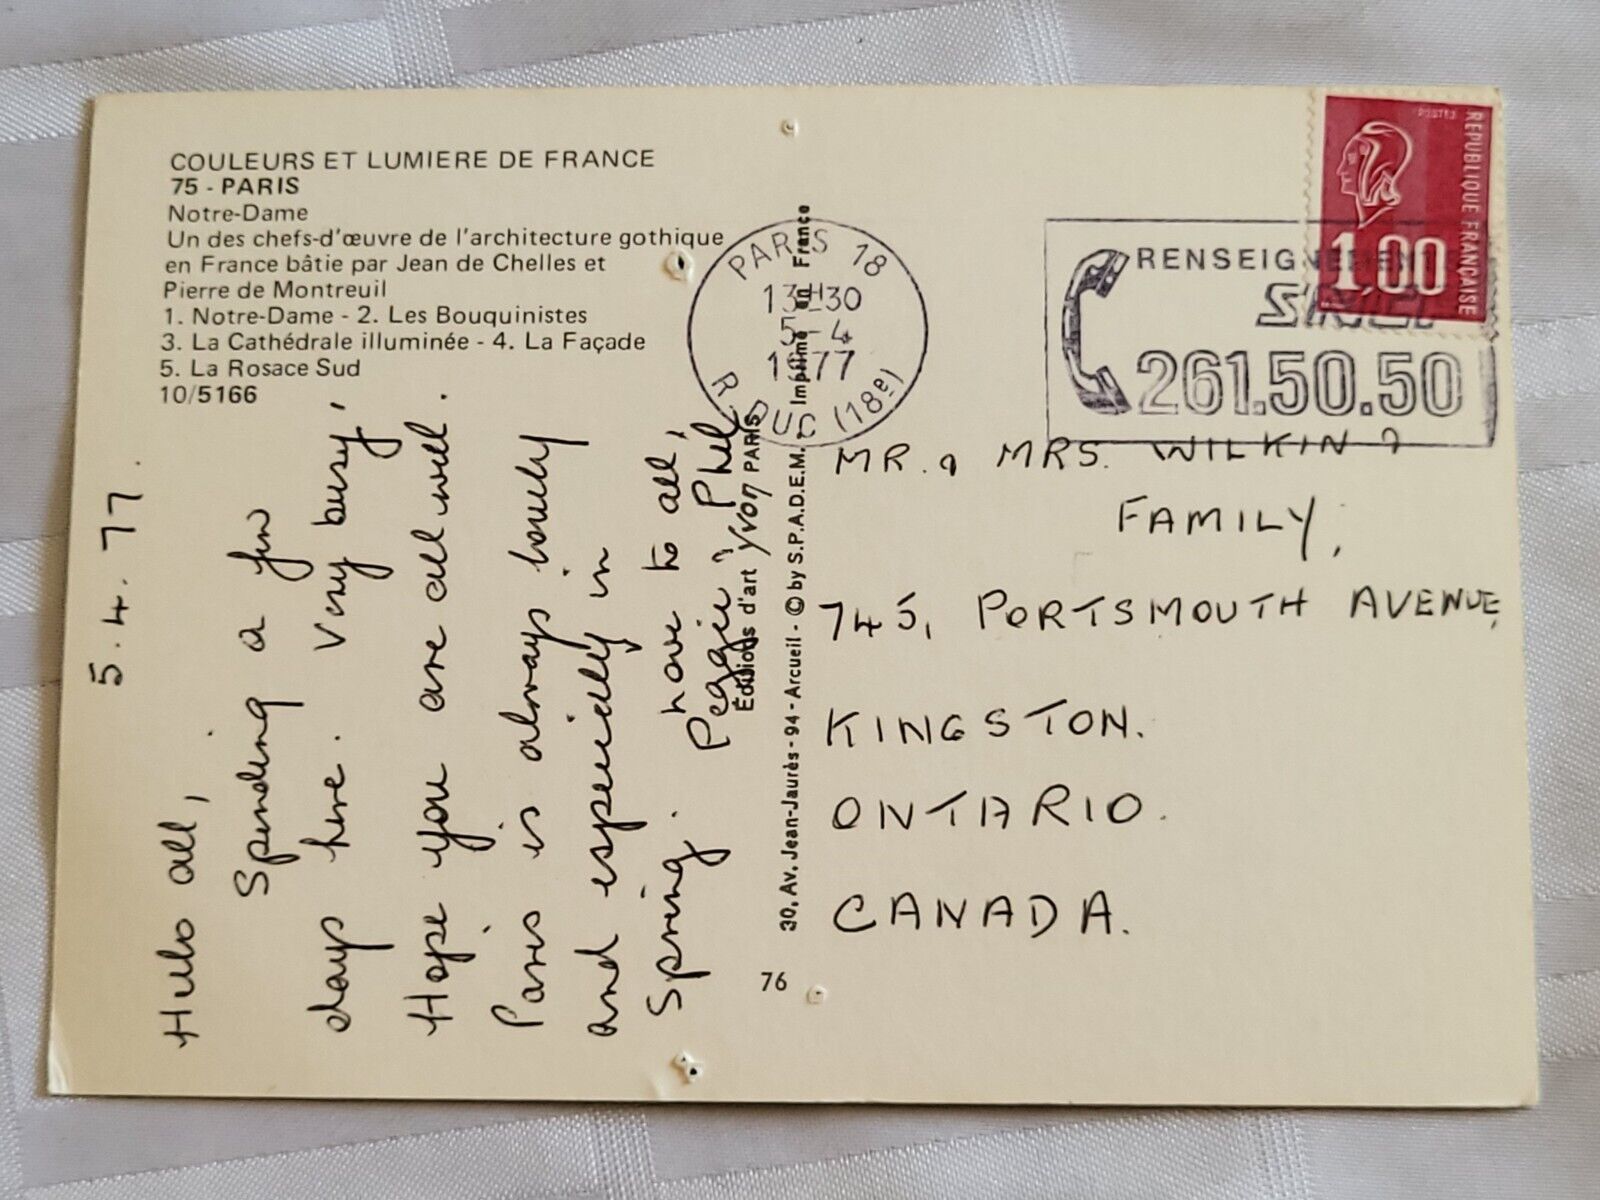 COULEURS ET LUMIERE DE FRANCE
75 - PARIS
Notre-Dame
Un des chefs-d'œuvre de l'architecture gothique
en France bâtie par Jean de Chelles et
Pierre de Montreuil
1. Notre-Dame - 2. Les Bouquinistes
3. La Cathédrale illuminée - 4. La Façade
5. La Rosace Sud
10/5166
5.4.77.
Hullo all,
Spending a few
days here. Very busy,
Hope you are all well.
Paris is always lovely
and especially in
Spring. Love to all,
Peggie & Phil
Éditions d'art Yvon PARIS
30, Av. Jean-Jaurès - 94 - Arcueil - © by S.P.A.D.E.M. Imprimé en France
76
PARIS 18
13H30
5-4
1977
R. DUC (18e)
POSTES
REPUBLIQUE FRANÇAISE
1,00
RENSEIGNEMENTS
261.50.50
MR. & MRS. WILKIN &
FAMILY,
745, PORTSMOUTH AVENUE,
KINGSTON.
ONTARIO.
CANADA.